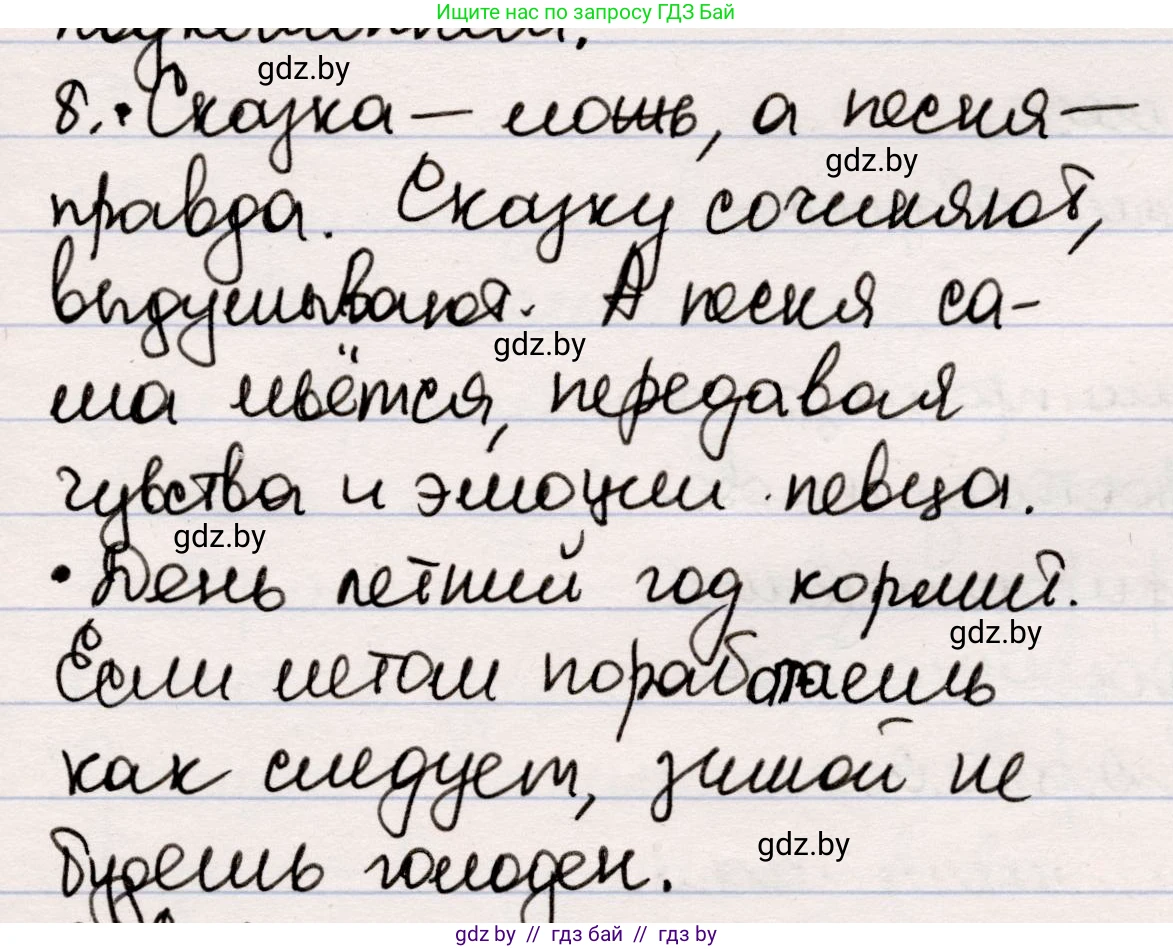 Ищите нас по запросу ГДЗ Бай
gdz.by
8. • Сказка – ложь, а песня –
gdz.by
правда. Сказку сочиняют,
выдумывают. А песня са-
gdz.by
ма льётся, передавая
чувства и эмоции певца.
gdz.by
• День летний год кормит.
gdz.by
Если летом поработаешь
как следует, зимой не
gdz.by
будешь голоден.
gdz.by // гдз бай // гдз by